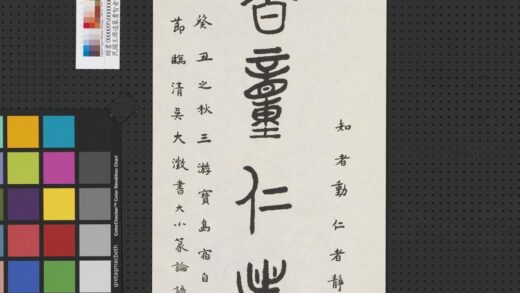 知者動 仁者靜
童仁
癸丑之秋三游寶島宿自
節臨清吳大澂書大小篆論語
ColorChecker Color Rendition Chart
gretagmacbeth